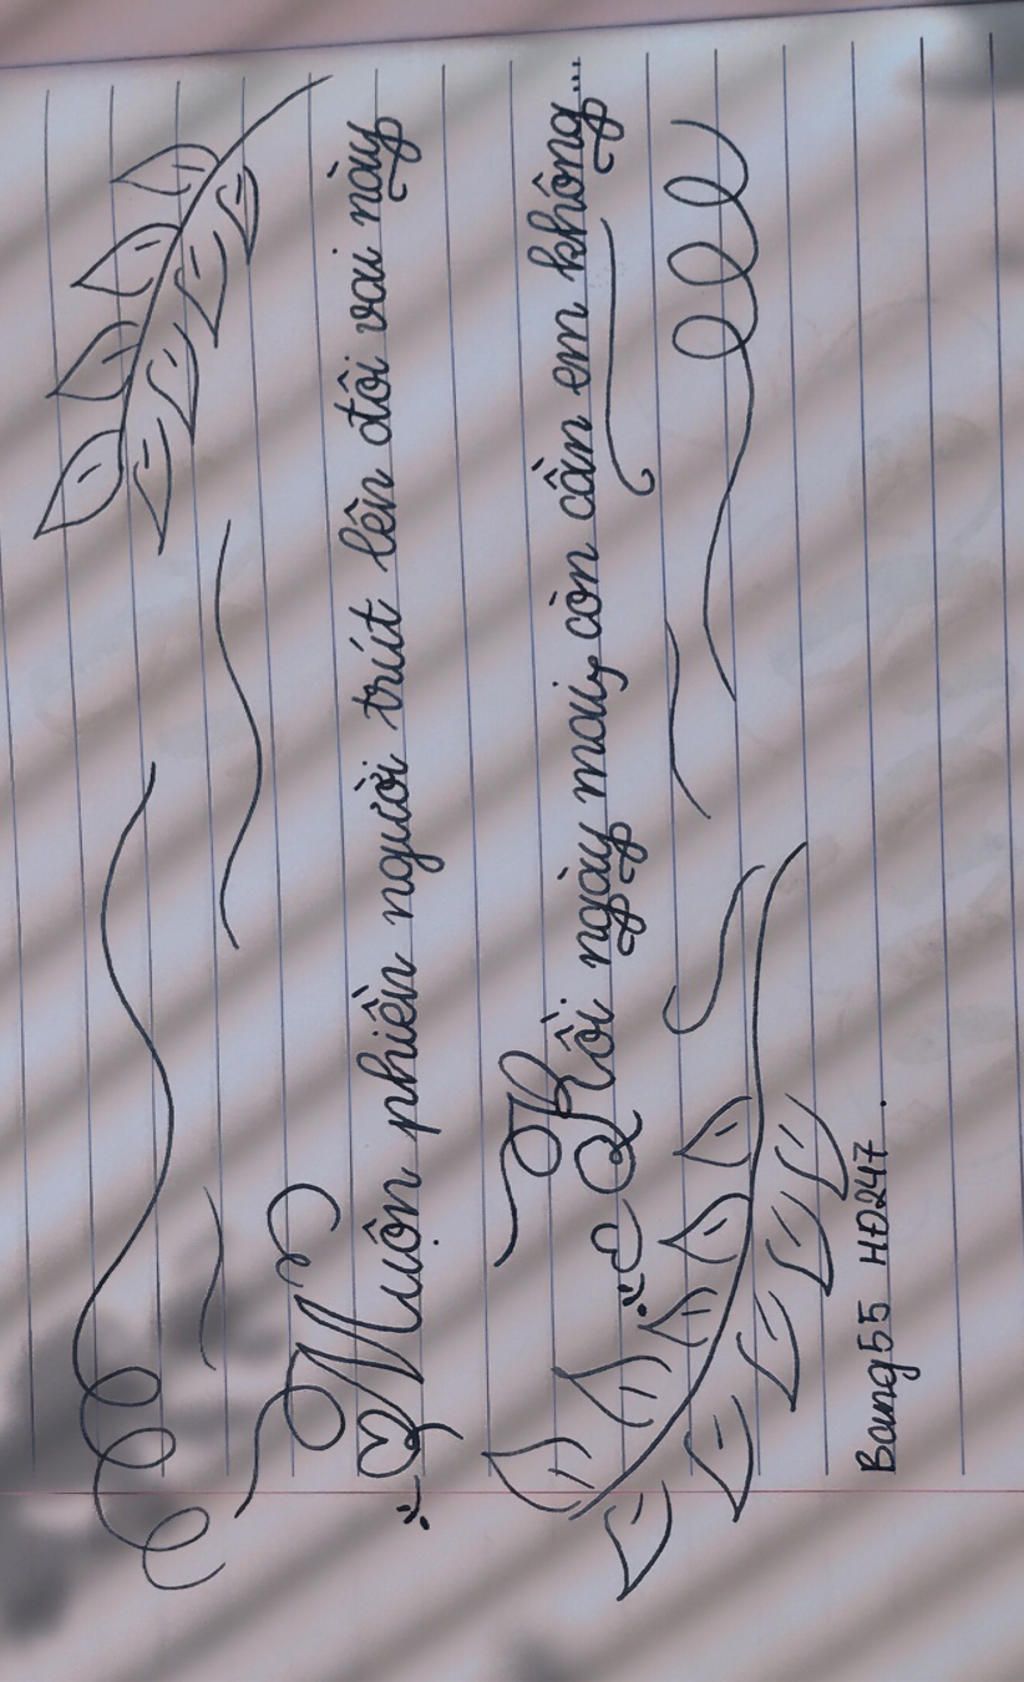 Muộn phiền người trút lên đôi vai này
Rồi ngày mai, còn cần em không...
Bang55 HĐ247.